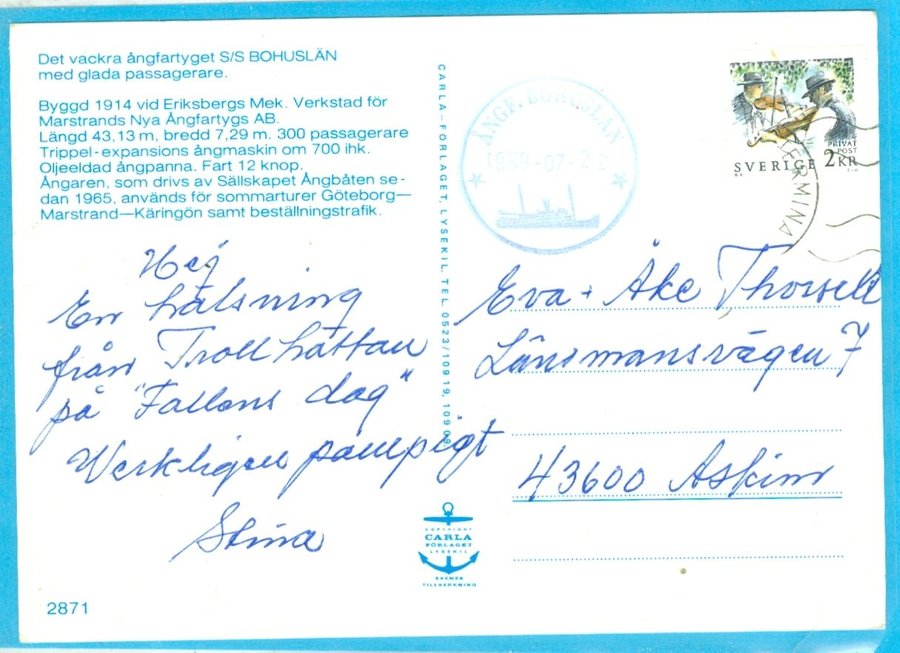 Det vackra ångfartyget S/S BOHUSLÄN
med glada passagerare.
Byggd 1914 vid Eriksbergs Mek. Verkstad för
Marstrands Nya Ångfartygs AB.
Längd 43,13 m, bredd 7,29 m. 300 passagerare
Trippel-expansions ångmaskin om 700 ihk.
Oljeeldad ångpanna. Fart 12 knop.
Ångaren, som drivs av Sällskapet Ångbåten se-
dan 1965, används för sommarturer Göteborg—
Marstrand—Käringön samt beställningstrafik.
Hej
En hälsning
från Trollhättan
på "Fallens dag"
Verkligen pampigt
Stina
2871
CARLA-FÖRLAGET, LYSEKIL. TEL. 0523/109 19, 109
COPYRIGHT
CARLA
FÖRLAGET
LYSEKIL
SVENSK
TILLVERKNING
ÅNGF. BOHUSLÄN
1989-07-22
PRIVAT
POST
SVERIGE 2 KR
TERMINA
Eva + Åke Thorsell
Länsmansvägen 7
43600 Askim